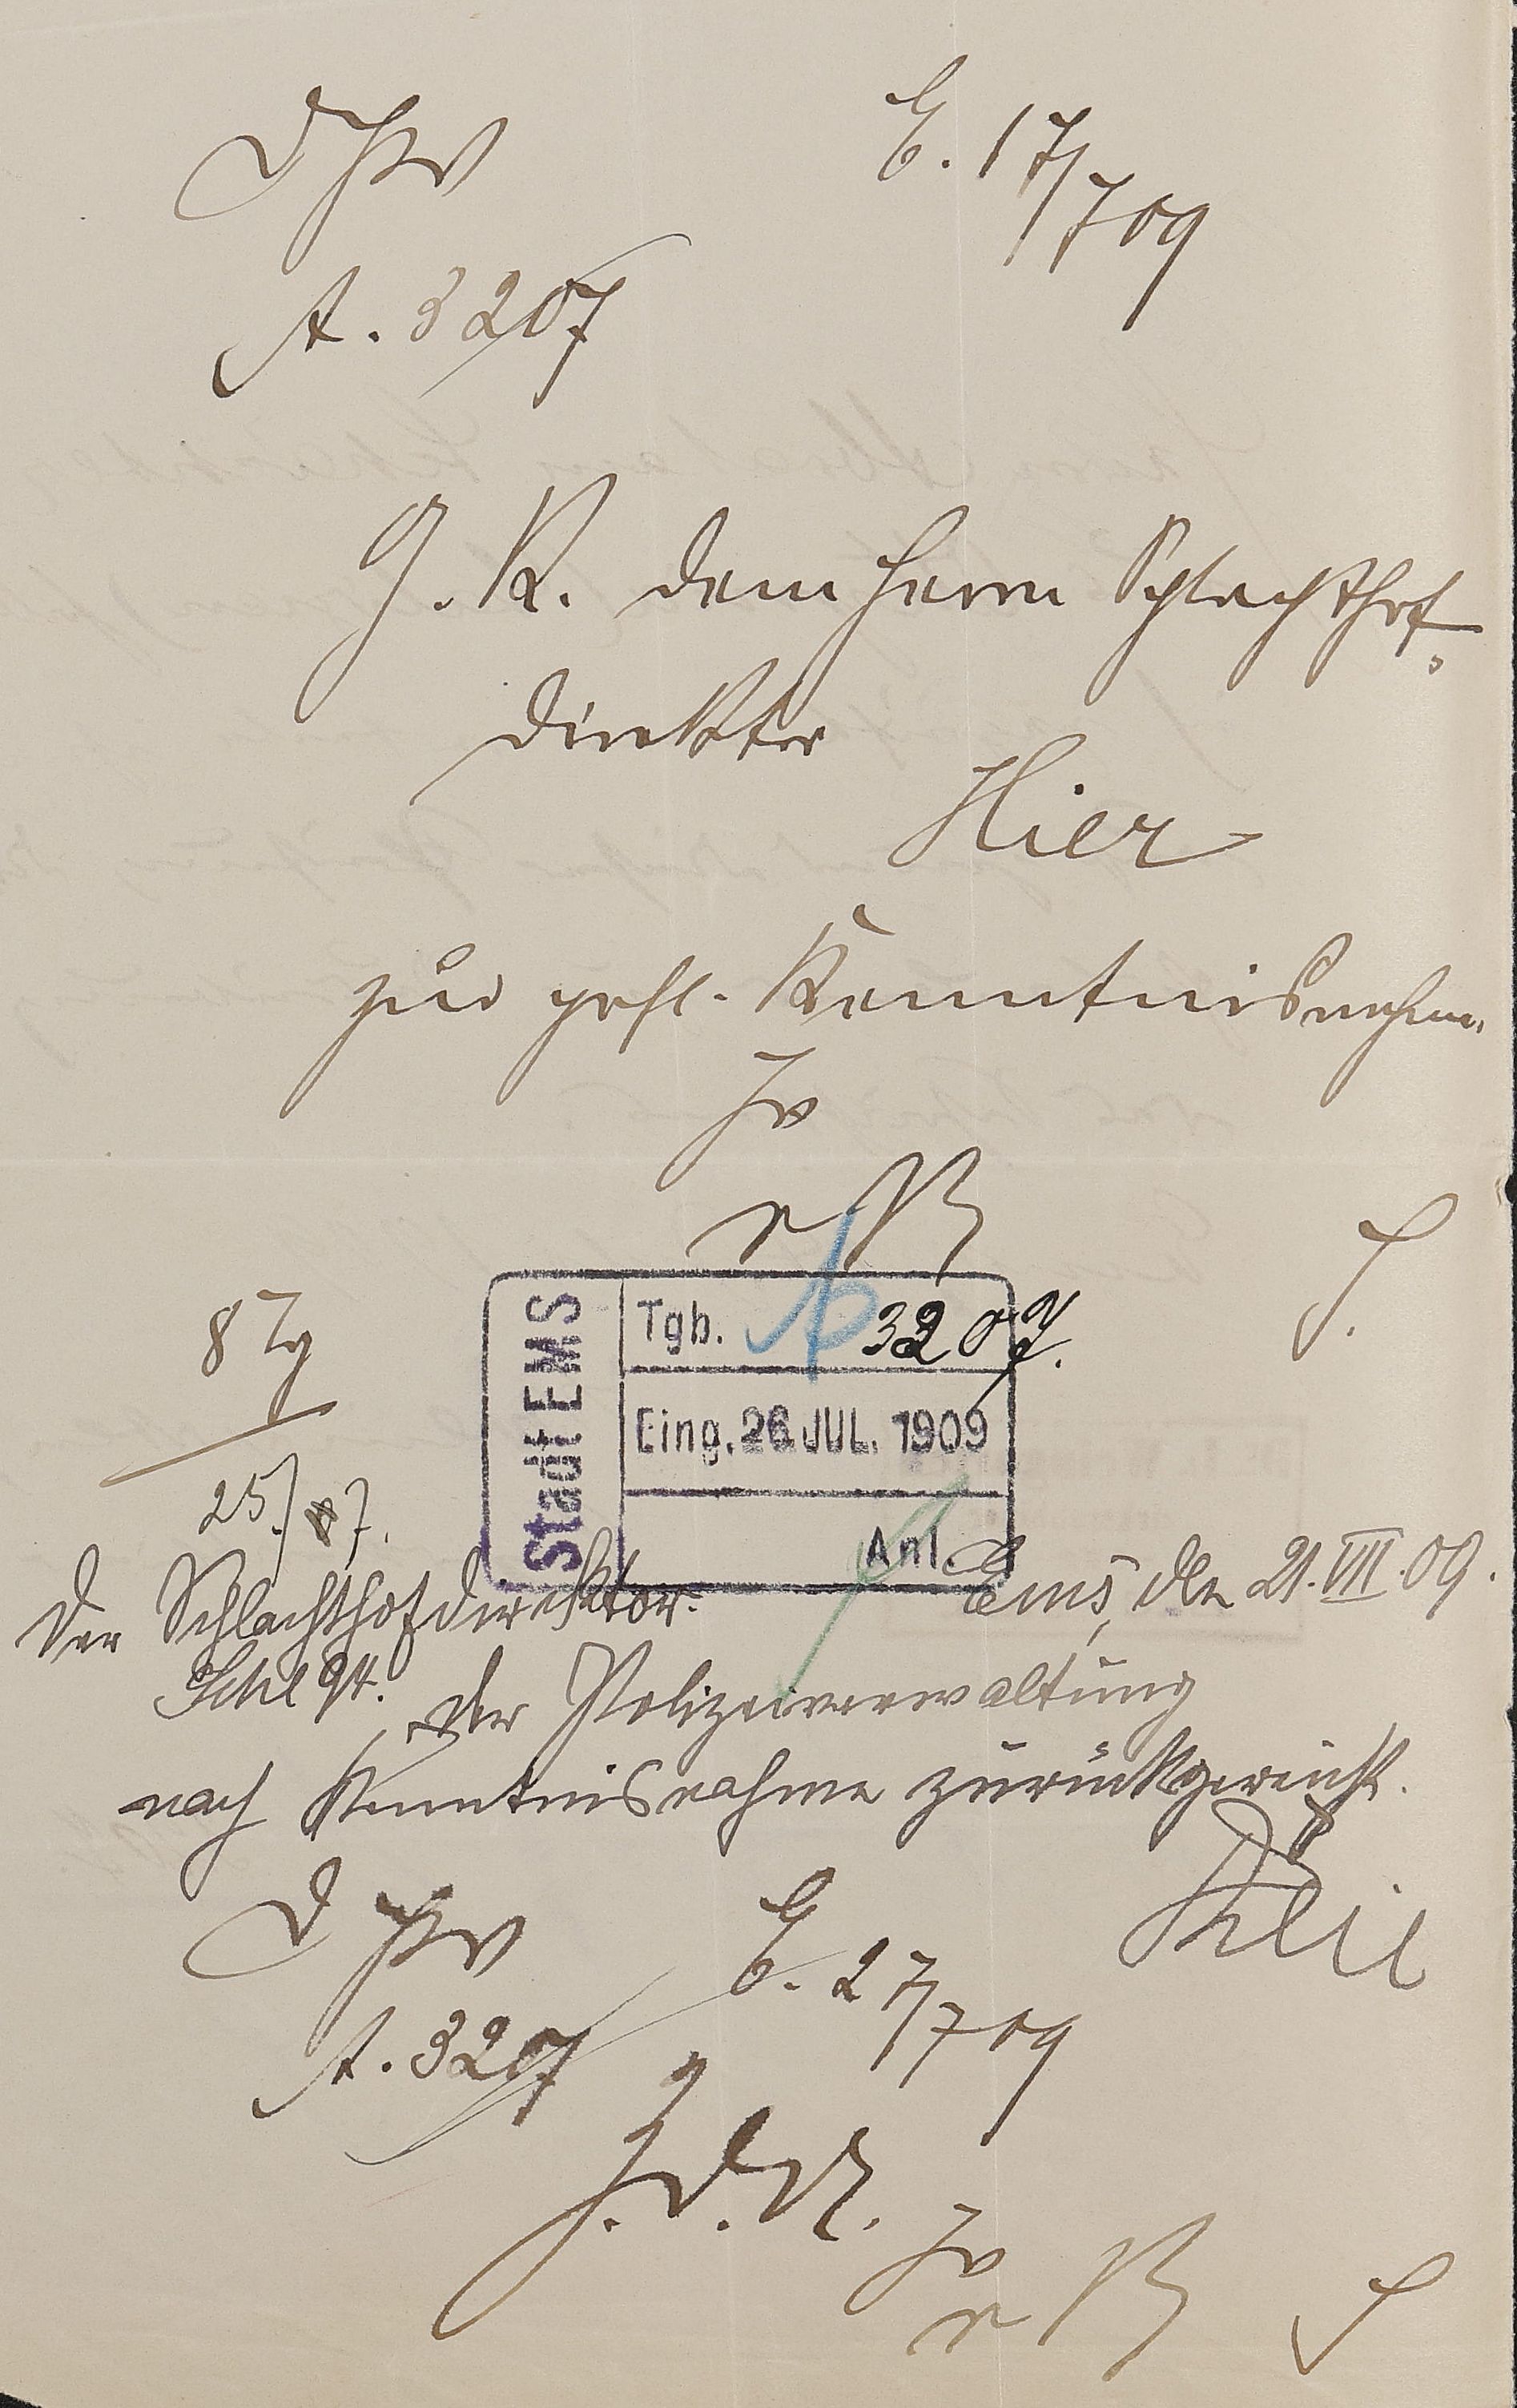 D P V E. 17/7 09
A. 3207
G. R. dem Herrn Schlachthof-
direktor
Hier
zur gefl. Kenntnisnahme.
JV
S.
8 Tg
Stadt EMS
Tgb. A 3207.
Eing. 26. JUL. 1909
Anl.
25./7.
Der Schlachthofdirektor. Ems, den 21. VII. 09.
der Polizeiverwaltung
nach Kenntnisnahme zurückgereicht.
D P V E. 27/7 09
A. 3207
z. d. A.
JV
S